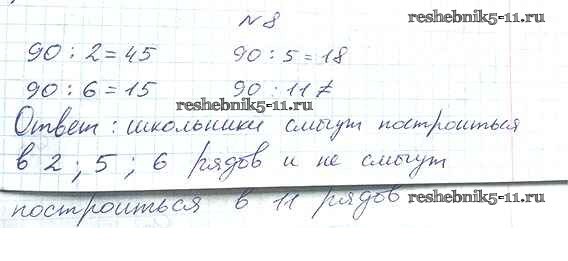 №8
reshebnik5-11.ru
90 : 2 = 45 90 : 5 = 18
90 : 6 = 15 90 : 11 ≠
reshebnik5-11.ru
Ответ: школьники смогут построиться
в 2; 5; 6 рядов и не смогут
построиться в 11 рядов
reshebnik5-11.ru